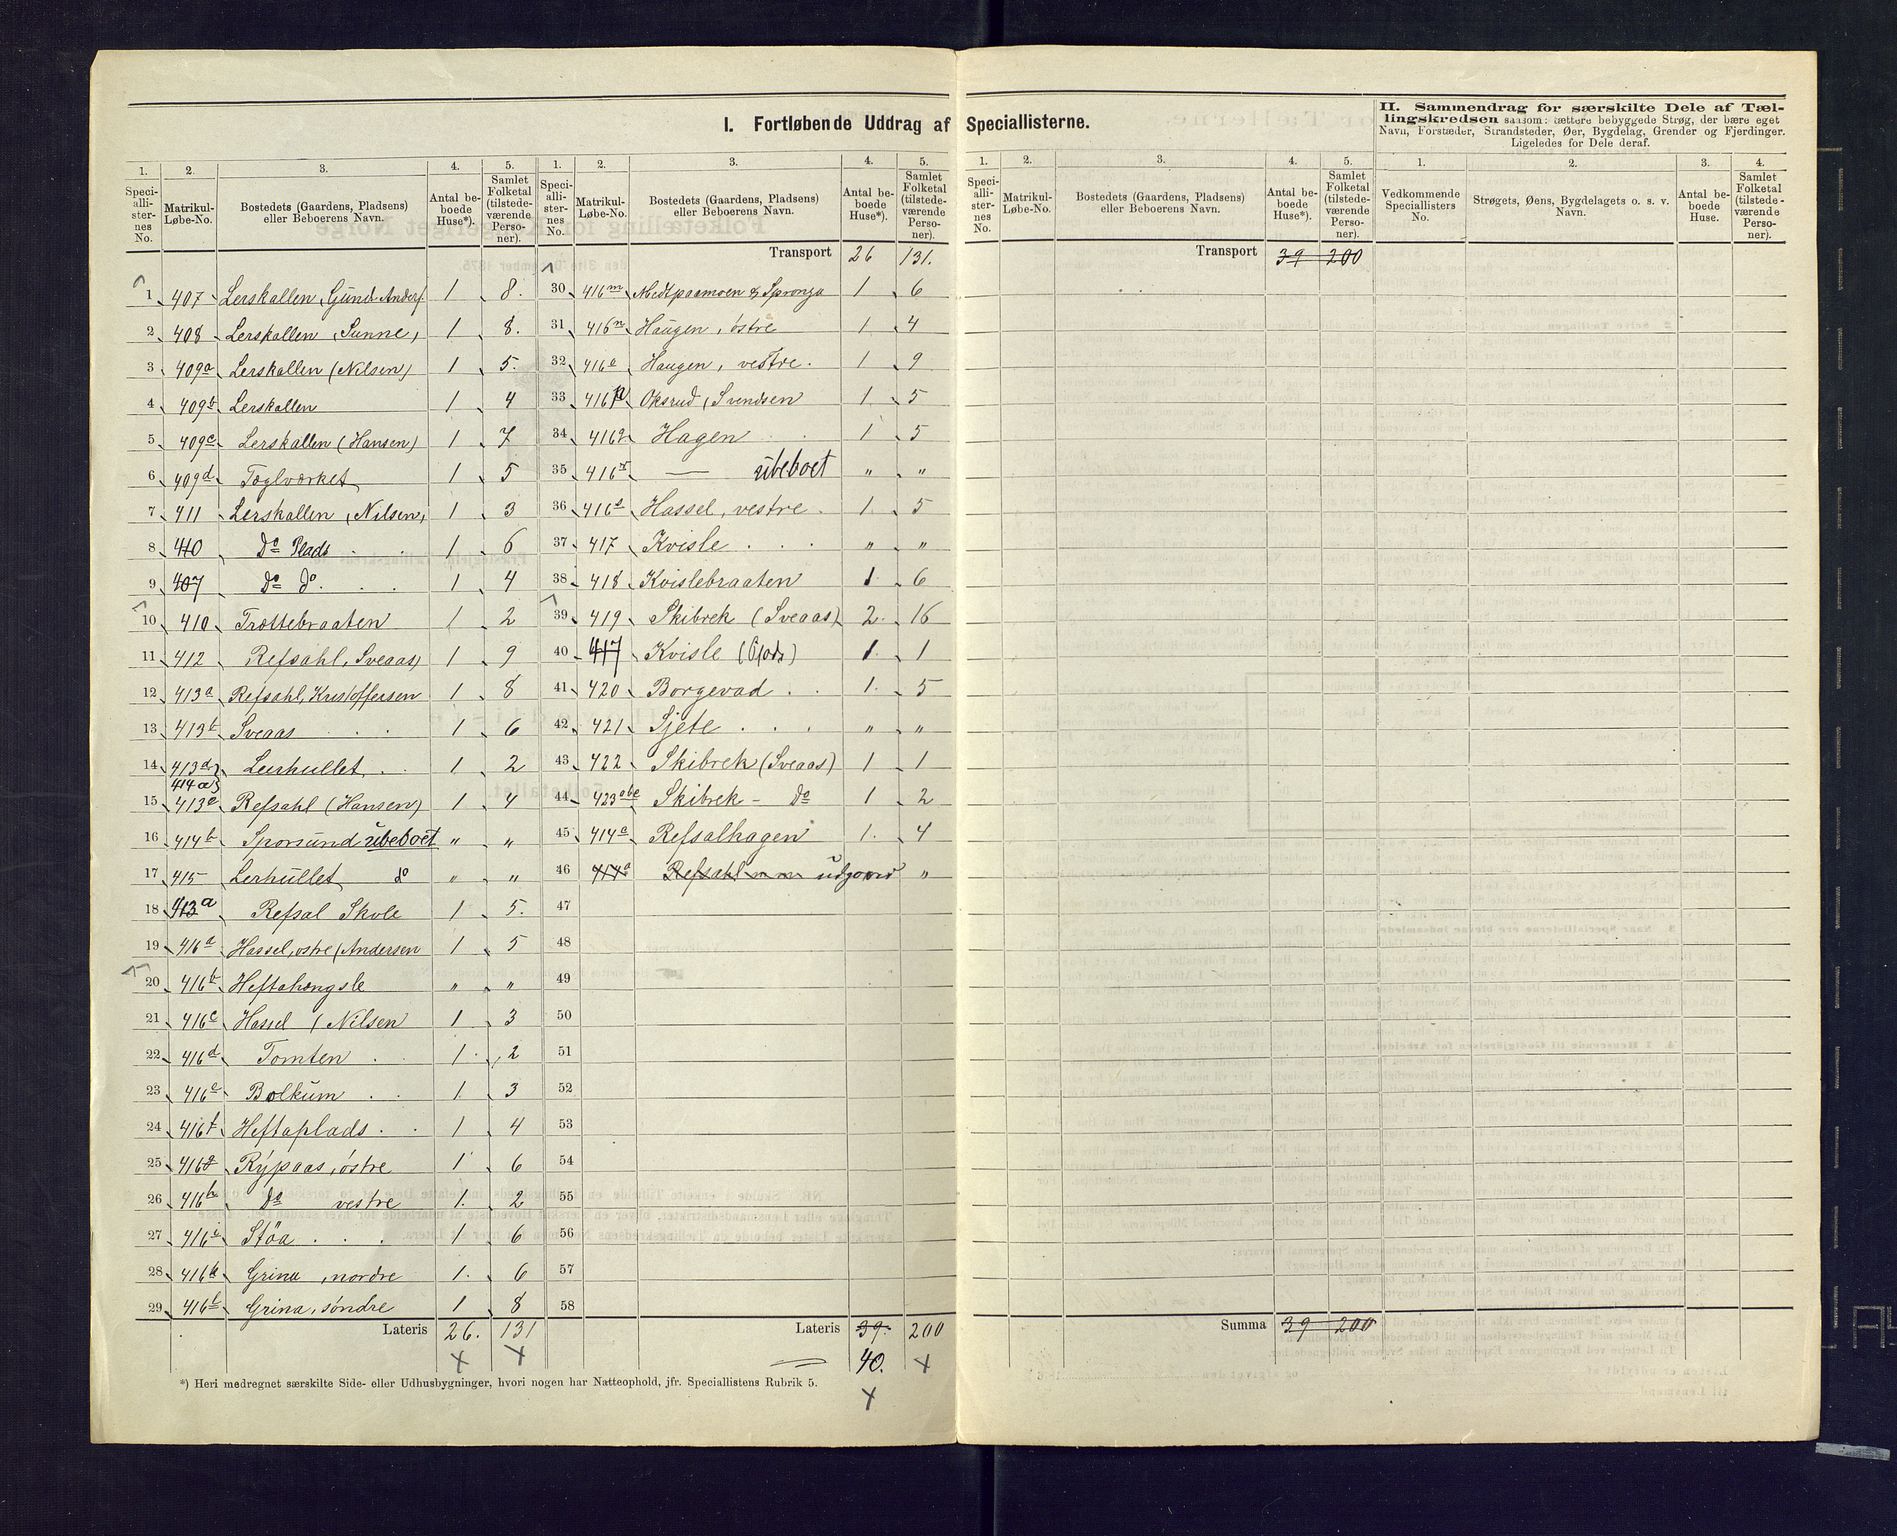 I. Fortløbende Uddrag af Speciallisterne.
II. Sammendrag for særskilte Dele af Tællingskredsen saasom: tættere bebyggede Strøg, der bære eget
Navn, Forstæder, Strandsteder, Øer, Bygdelag, Grender og Fjerdinger.
Ligeledes for Dele deraf.
1. 2. 3. 4. 5. 1. 2. 3. 4. 5. 1. 2. 3. 4. 5. 1. 2. 3. 4.
Speciallisternes No. Matrikul-Løbe-No. Bostedets (Gaardens, Pladsens) eller Beboerens Navn. Antal beboede Huse*). Samlet Folketal (tilstedeværende Personer).
Speciallisternes No. Matrikul-Løbe-No. Bostedets (Gaardens, Pladsens) eller Beboerens Navn. Antal beboede Huse*). Samlet Folketal (tilstedeværende Personer).
Speciallisternes No. Matrikul-Løbe-No. Bostedets (Gaardens, Pladsens) eller Beboerens Navn. Antal beboede Huse*). Samlet Folketal (tilstedeværende Personer).
Vedkommende Speciallisters No. Strøgets, Øens, Bygdelagets o. s. v. Navn. Antal beboede Huse. Samlet Folketal (tilstedeværende Personer).
1 407 Lerskallen, Gund. Anders 1 8.
2 408 Lerskallen (Sunne) 1 8.
3 409a Lerskallen (Nilsen) 1 5.
4 409b Lerskallen 1 4
5 409c Lerskallen (Hansen) 1 7
6 409d Teglværket 1 5
7 411 Lerskallen (Nilsen) 1 3
8 410 Do Plads 1 6
9 407 Do do. 1 4
10 410 Trættebraaten 1 2
11 412 Refsahl, Sveaas) 1 9
12 413a Refsahl, Kristoffersen 1 8
13 413b Sveaas 1 6
14 413d Leirhullet 1 2
414a
15 413a Refsahl (Hansen) 1 4
16 414b Sporsund ubeboet " "
17 415 Lerhullet do " "
18 413a Refsal Skole 1 5.
19 416a Hassel, østre (Andersen 1 5
20 416b Heftahængsle " "
21 416c Hassel (Nilsen 1 3
22 416d Tomten 1 2
23 416e Bolkum 1 3
24 416f Heftaplads 1 4
25 416g Rypaas, østre 1 6
26 416h Do vestre 1 2
27 416i Stöa 1 6
28 416k Grina, nordre 1 6
29 416l Grina, søndre 1 8
Lateris 26. 131
Transport 26 131.
30 416m Medtpaamoen & Spronga 1 6
31 416n Haugen, østre 1 4
32 416o Haugen, vestre. 1 9
33 416p Oksrud, Svendsen 1 5
34 416q Hagen 1 5
35 416r — ubeboet " "
36 416s Hassel, vestre 1 5
37 417 Kvisle " "
38 418 Kvislebraaten 1 6
39 419 Skibrek (Sveaas) 2 16
40 417 Kvisle 1 1
41 420 Borgevad 1 5
42 421 Sjete " "
43 422 Skibrek (Sveaas) 1 1
44 423abc Skibrek - Do 1 2
45 414a Refsalhagen 1 4
46 414a Refsahl udgaard "
47
48
49
50
51
52
53
54
55
56
57
58
Lateris 39. 200
40.
Transport 39 200
Summa 39 200
*) Heri medregnet særskilte Side- eller Udhusbygninger, hvori nogen har Natteophold, jfr. Speciallistens Rubrik 5.